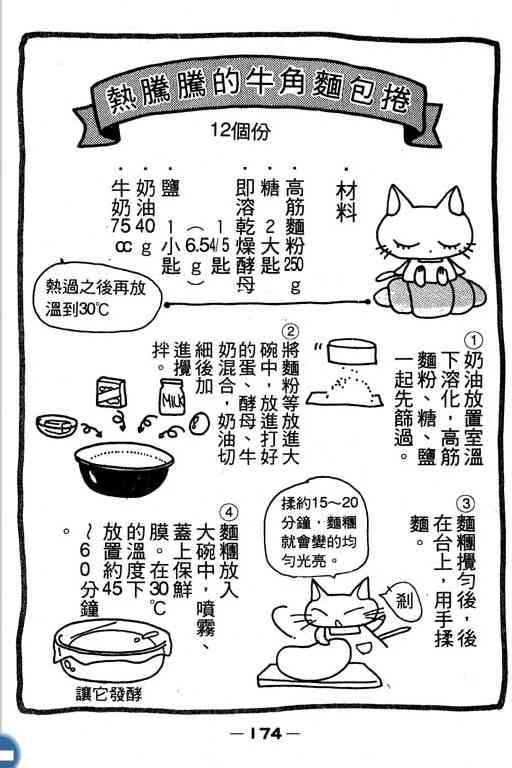 熱騰騰的牛角麵包捲
12個份
．材料
高筋麵粉250g
糖 2大匙
即溶乾燥酵母
1 4/5匙
（6.5g）
．鹽 1小匙
．奶油40g
．牛奶75cc
熱過之後再放
溫到30℃
①奶油放置室溫
下溶化，高筋
麵粉、糖、鹽
一起先篩過。
②將麵粉等放進大
碗中，放進打好
的蛋、酵母、牛
奶混合，奶油切
細後加
進攪
拌。
MILK
③麵糰攪勻後，後
在台上，用手揉
麵。
揉約15～20
分鐘，麵糰
就會變的均
勻光亮。
剎
④麵糰放入
大碗中，噴霧、
蓋上保鮮
膜。在30℃
的溫度下
放置約45
～60分鐘
。
讓它發酵
— 174 —